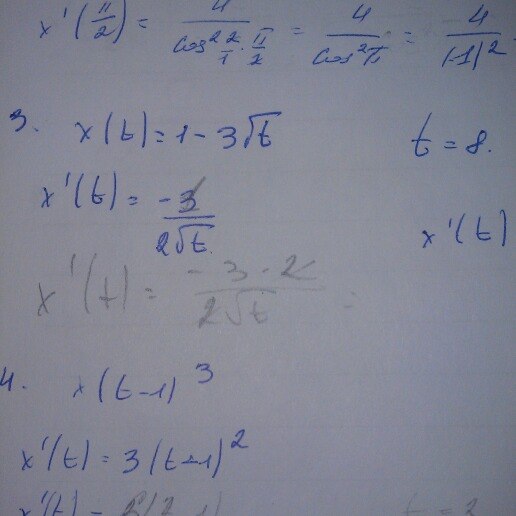 x'(π/2) = 4/cos² 2/1 · π/2 = 4/cos²π = 4/(-1)²
3. x(t) = 1 - 3√t t = 8.
x'(t) = -3/2√t x'(t)
x'(t) = -3 · 2/2√t =
4. x(t-1)³
x'(t) = 3(t-1)²
x'(t) =